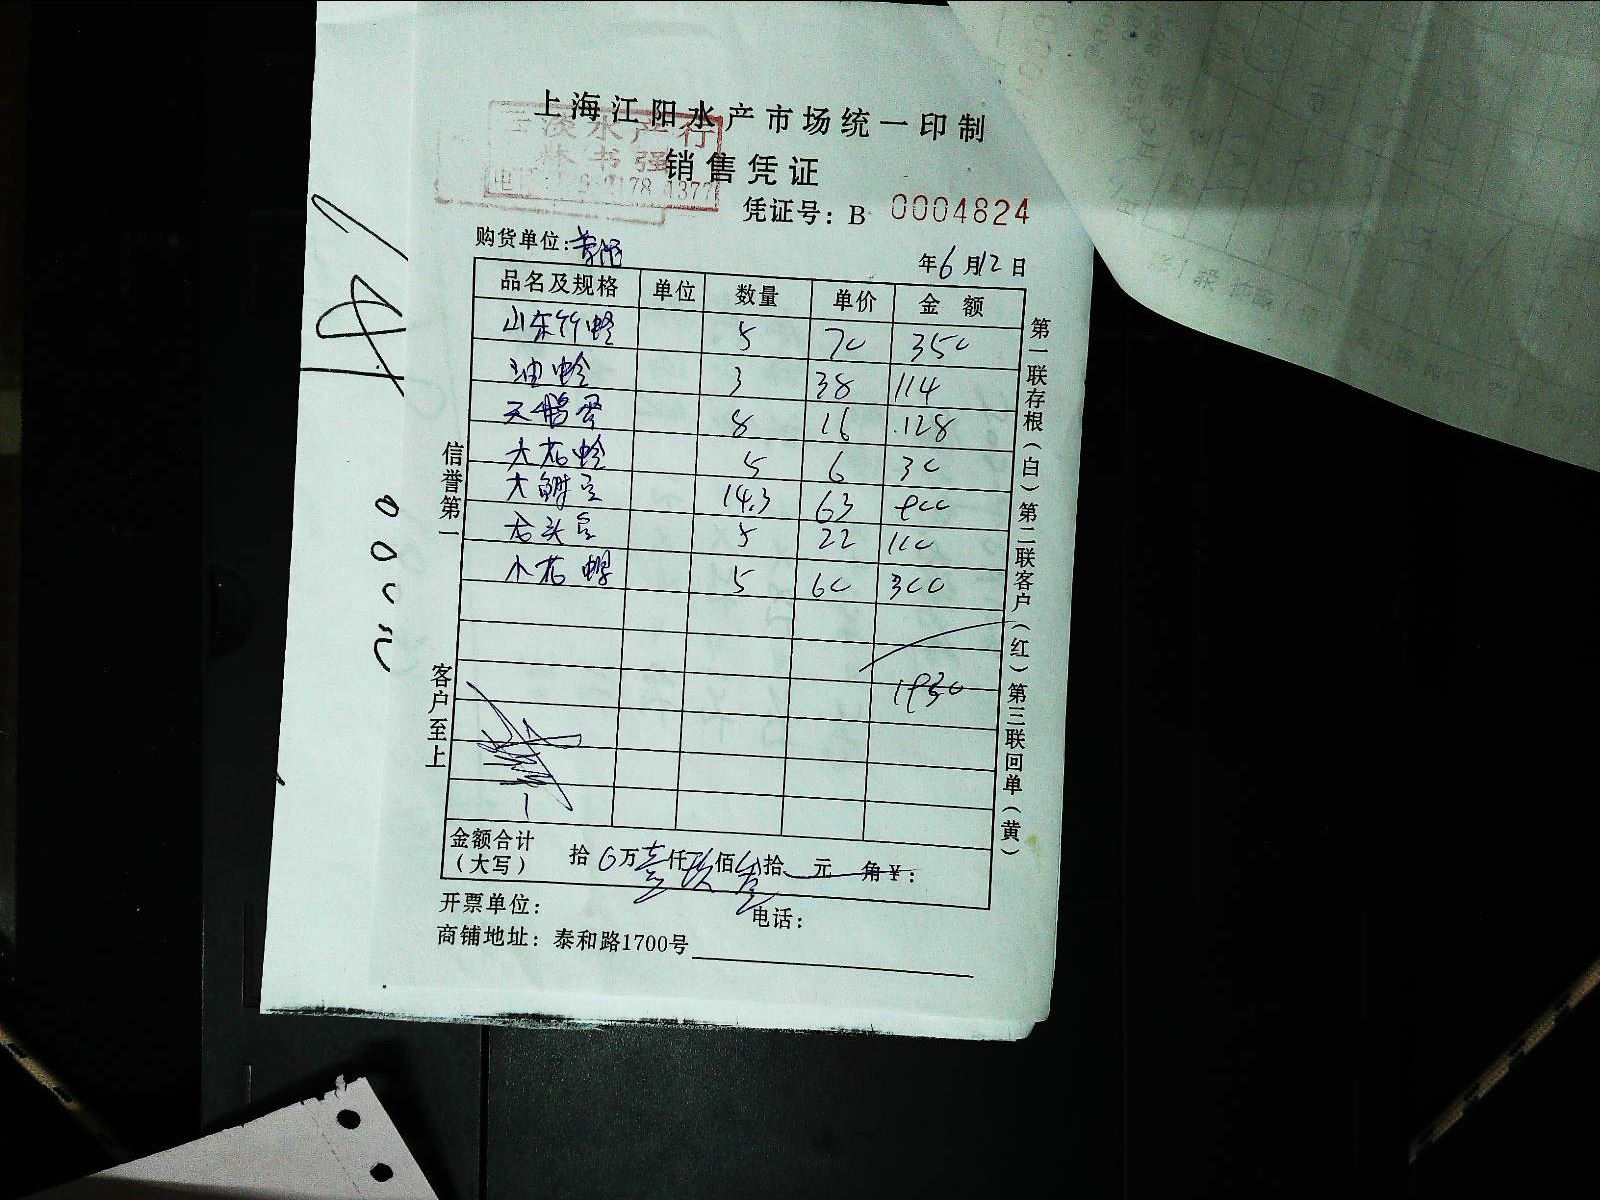 上海江阳水产市场统一印制
淡水产行
林书强
销售凭证
凭证号：B 0004824
购货单位：
年6月12日
品名及规格 单位 数量 单价 金额
山东竹蛏 5 70 350
油蛤 3 38 114
天鹅蛋 8 16 128
大花蛤 5 6 30
大鲜 14.3 63 900
老头 5 22 110
小花螺 5 60 300
1930
金额合计（大写） 拾0万壹仟玖佰叁拾元角¥：
开票单位： 电话：
商铺地址：泰和路1700号
信誉第一
客户至上
第一联存根（白）第二联客户（红）第三联回单（黄）